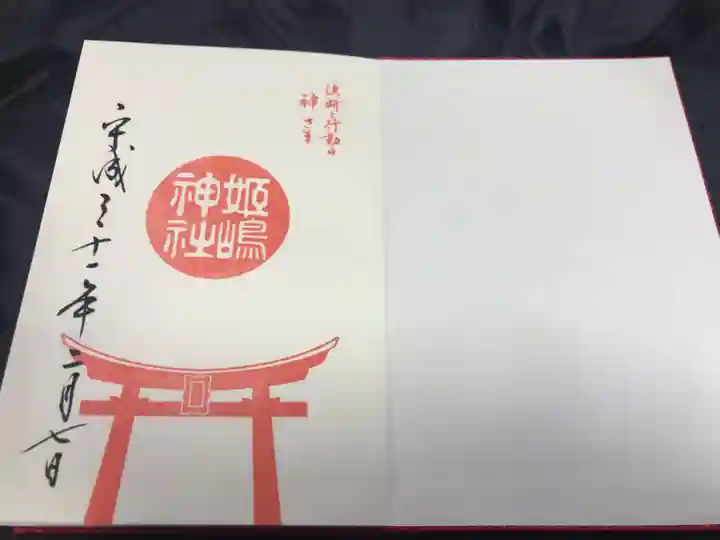 決断と行動の
神さま
姫嶋
神社
平成三十一年二月七日